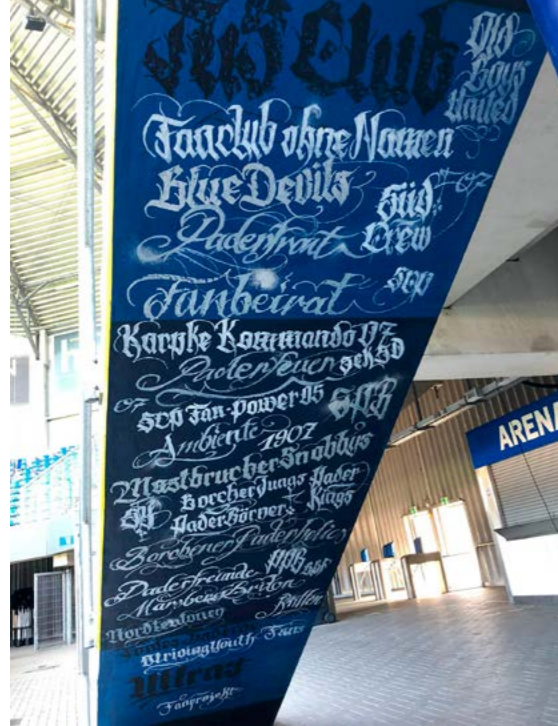 Club
Old
Boys
United
Fanclub ohne Namen
Blue Devils
Süd
Crew
07
Paderfront
Fanbeirat
scp
Karpke Kommando 07
Paderfeuer
07
scp Fan-Power 05
SPB
Ambiente 1907
Mastbrucher Snobbys
Borcher Jungs
Pader
Kings
PaderBörner
Borchener Paderholic
Paderfreunde
PPB
Striving Youth Fans
Ultras
Fanprojekt
ARENA